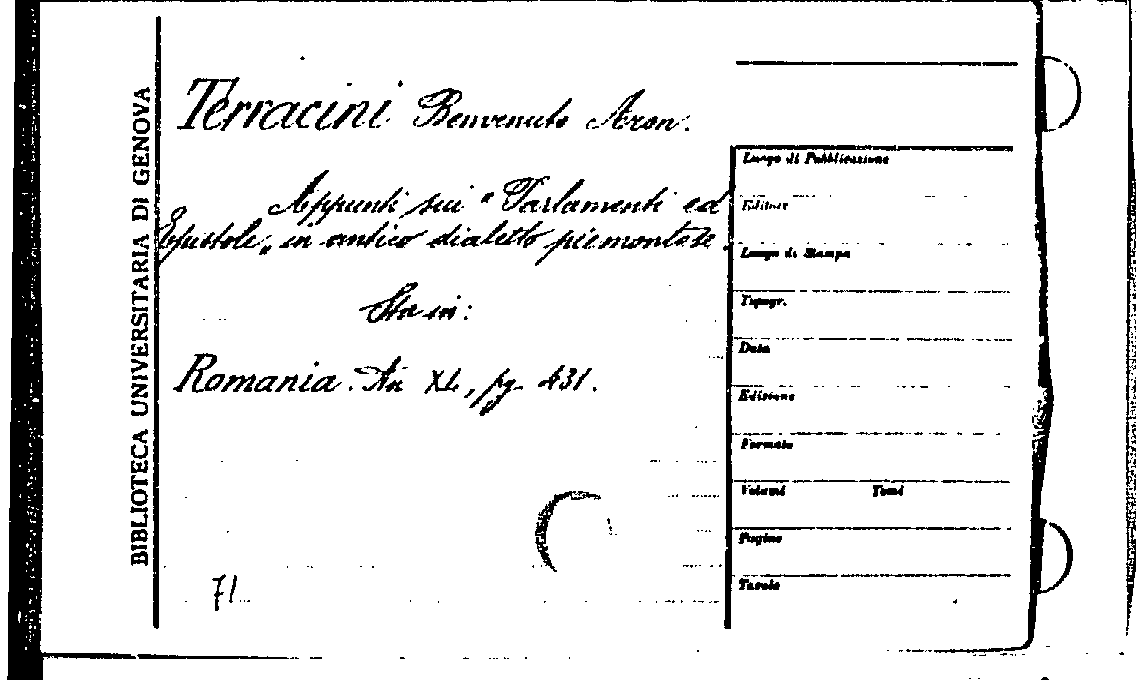 BIBLIOTECA UNIVERSITARIA DI GENOVA
Terracini Benvenuto Aron.
Appunti sui "Parlamenti ed
Epistole„ in antico dialetto piemontese.
Sta in:
Romania. An XL, pg. 431.
71
Luogo di Pubblicazione
Editore
Luogo di Stampa
Tipogr.
Data
Edizione
Formato
Volumi Tomi
Pagine
Tavole